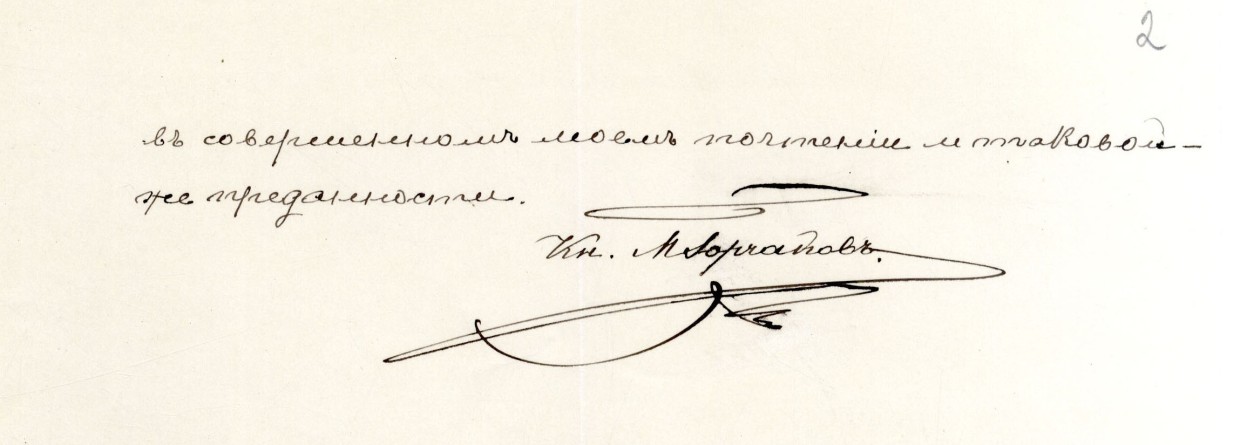 2
въ совершенномъ моемъ почтенiи и таковой-
же преданности.
Кн. М Горчаковъ.